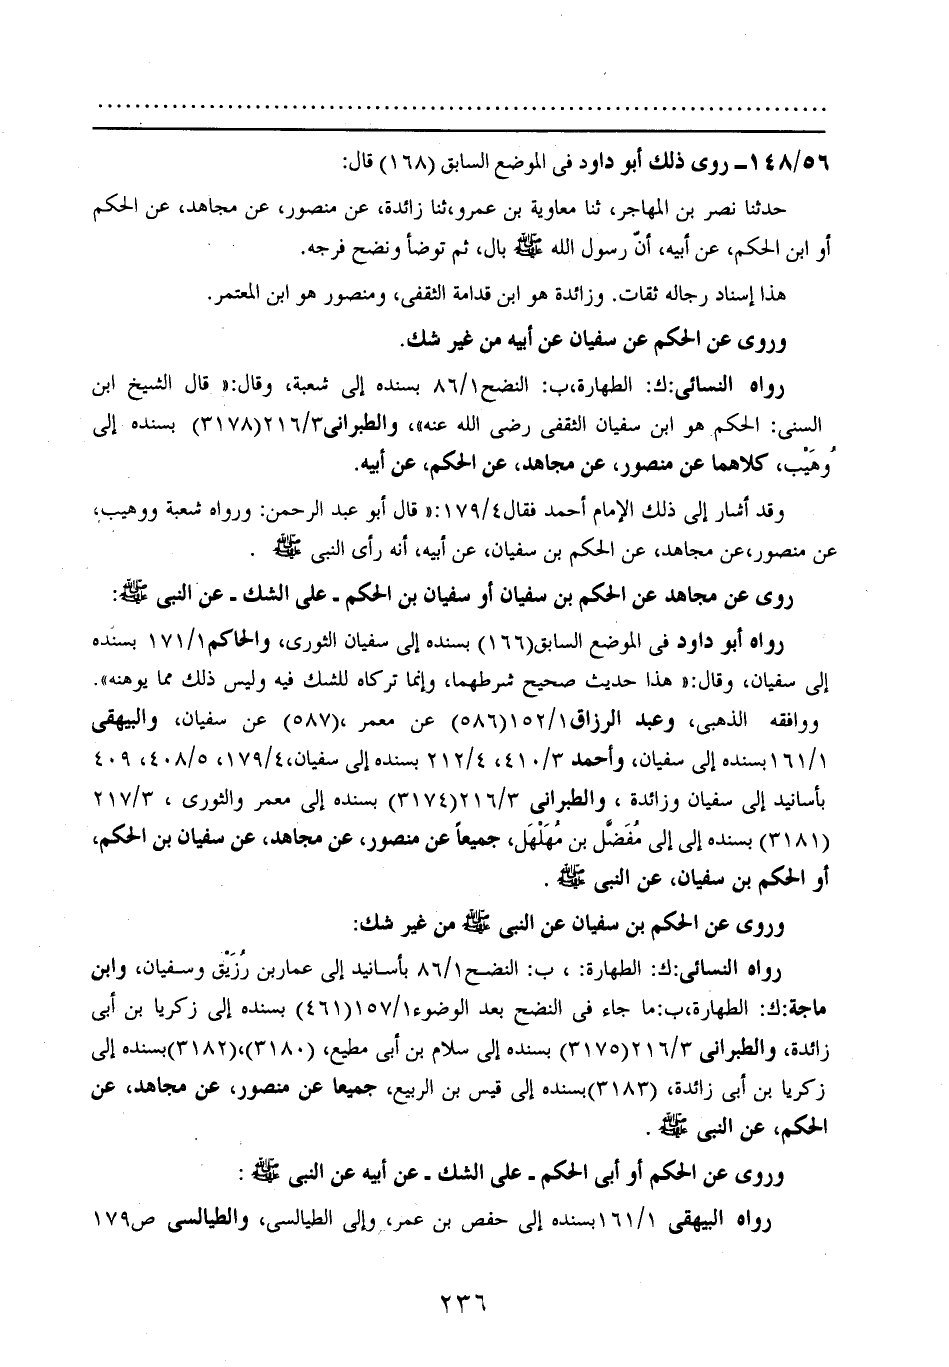 ١٤٨/٥٦ـ روى ذلك أبو داود فى الموضع السابق (١٦٨) قال:
حدثنا نصر بن المهاجر، ثنا معاوية بن عمرو،ثنا زائدة، عن منصور، عن مجاهد، عن الحكم
أو ابن الحكم، عن أبيه، أنّ رسول الله ﷺ بال، ثم توضأ ونضح فرجه.
هذا إسناد رجاله ثقات. وزائدة هو ابن قدامة الثقفى، ومنصور هو ابن المعتمر.
وروى عن الحكم عن سفيان عن أبيه من غير شك.
رواه النسائى:ك: الطهارة،ب: النضح٨٦/١ بسنده إلى شعبة، وقال:« قال الشيخ ابن
السنى: الحكم هو ابن سفيان الثقفى رضى الله عنه»، والطبرانى٢١٦/٣(٣١٧٨) بسنده إلى
وُهَيْب، كلاهما عن منصور، عن مجاهد، عن الحكم، عن أبيه.
وقد أشار إلى ذلك الإمام أحمد فقال١٧٩/٤:« قال أبو عبد الرحمن: ورواه شعبة ووهيب،
عن منصور،عن مجاهد، عن الحكم بن سفيان، عن أبيه، أنه رأى النبى ﷺ .
روى عن مجاهد عن الحكم بن سفيان أو سفيان بن الحكم ـ على الشك ـ عن النبى ﷺ:
رواه أبو داود فى الموضع السابق(١٦٦) بسنده إلى سفيان الثورى، والحاكم١٧١/١ بسنده
إلى سفيان، وقال:« هذا حديث صحيح شرطهما، وإنما تركاه للشك فيه وليس ذلك مما يوهنه».
ووافقه الذهبى، وعبد الرزاق١٥٢/١(٥٨٦) عن معمر ،(٥٨٧) عن سفيان، والبيهقى
١٦١/١بسنده إلى سفيان، وأحمد ٤١٠/٣، ٢١٢/٤ بسنده إلى سفيان،١٧٩/٤، ٤٠٨/٥، ٤٠٩
بأسانيد إلى سفيان وزائدة ، والطبرانى ٢١٦/٣(٣١٧٤) بسنده إلى معمر والثورى ، ٢١٧/٣
(٣١٨١) بسنده إلى إلى مُفَضَّل بن مُهَلْهَل، جميعاً عن منصور، عن مجاهد، عن سفيان بن الحكم،
أو الحكم بن سفيان، عن النبى ﷺ .
وروى عن الحكم بن سفيان عن النبى ﷺ من غير شك:
رواه النسائى:ك: الطهارة: ، ب: النضح٨٦/١ بأسانيد إلى عماربن رُزَيْق وسفيان، وابن
ماجة:ك: الطهارة،ب:ما جاء فى النضح بعد الوضوء١٥٧/١(٤٦١) بسنده إلى زكريا بن أبى
زائدة، والطبرانى ٢١٦/٣(٣١٧٥) بسنده إلى سلام بن أبى مطيع، (٣١٨٠)،(٣١٨٢)بسنده إلى
زكريا بن أبى زائدة، (٣١٨٣)بسنده إلى قيس بن الربيع، جميعا عن منصور، عن مجاهد، عن
الحكم، عن النبى ﷺ .
وروى عن الحكم أو أبى الحكم ـ على الشك ـ عن أبيه عن النبى ﷺ :
رواه البيهقى ١٦١/١بسنده إلى حفص بن عمر، وإلى الطيالسى، والطيالسى ص١٧٩
٢٣٦